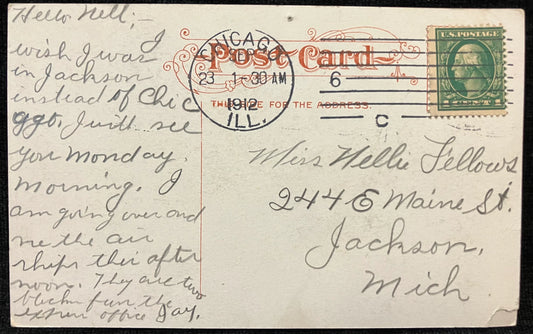 Hello Nell;-
I
wish I was
in Jackson
instead of Chic
ago. I will see
you Monday
morning. I
am going over and
the air
ships this after
noon. They are two
the
office Jay.
Post Card
THIS SIDE FOR THE ADDRESS.
CHICAGO
SEP
23 1-30 AM
1912
ILL.
6
C
U.S. POSTAGE
Miss Nellie Fellows
244 E Maine St.
Jackson,
Mich.